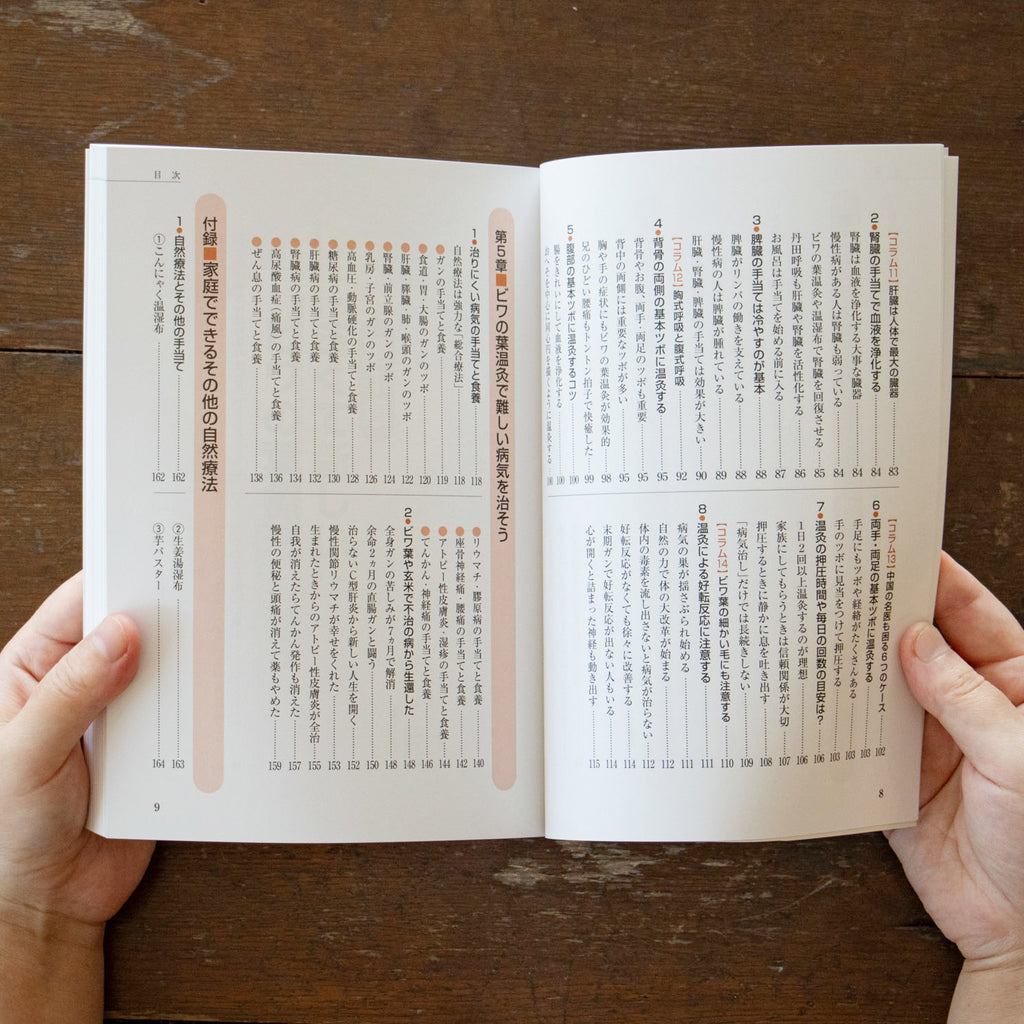 【コラム11】肝臓は人体で最大の臓器 83
2●腎臓の手当てで血液を浄化する 84
腎臓は血液を浄化する大事な臓器 84
慢性病がある人は腎臓も弱っている 84
ビワの葉温灸や温湿布で腎臓を回復させる 85
丹田呼吸も肝臓や腎臓を活性化する 86
お風呂は手当てを始める前に入る 87
3●脾臓の手当ては冷やすのが基本 88
脾臓がリンパの働きを支えている 88
慢性病の人は脾臓が腫れている 89
肝臓・腎臓・脾臓の手当ては効果が大きい 90
【コラム12】胸式呼吸と腹式呼吸 92
4●背骨の両側の基本ツボに温灸する 95
背骨やお腹、両手・両足のツボも重要 95
背中の両側には重要なツボが多い 95
胸や手の症状にもビワの葉温灸が効果的 98
兄のひどい腰痛もトントン拍子で快癒した 99
5●腹部の基本ツボに温灸するコツ 100
腸をきれいにして血液を浄化する 100
6●両手・両足の基本ツボに温灸する
【コラム13】中国の名医も困る6つのケース 102
手足にもツボや経絡がたくさんある 103
手のツボに見当をつけて押圧する 103
7●温灸の押圧時間や毎日の回数の目安は? 106
1日2回以上温灸するのが理想 106
家族にしてもらうときは信頼関係が大切 107
押圧するときに静かに息を吐き出す 108
「病気治し」だけでは長続きしない 109
【コラム14】ビワ葉の細かい毛にも注意する 110
8●温灸による好転反応に注意する 111
病気の巣が揺さぶられ始める 111
自然の力で体の大改革が始まる 112
体内の毒素を流し出さないと病気が治らない 112
好転反応がなくても徐々に改善する 114
末期ガンで好転反応が出ない人もいる 114
心が開くと詰まった神経も動き出す 115
8
第5章■ビワの葉温灸で難しい病気を治そう
1●治りにくい病気の手当てと食養 118
自然療法は強力な「総合療法」 118
●ガンの手当てと食養 119
●食道・胃・大腸のガンのツボ 120
●肝臓・膵臓・肺・喉頭のガンのツボ 122
●腎臓・前立腺のガンのツボ 124
●乳房・子宮のガンのツボ 126
●高血圧・動脈硬化の手当てと食養 128
●糖尿病の手当てと食養 130
●肝臓病の手当てと食養 132
●腎臓病の手当てと食養 134
●高尿酸血症(痛風)の手当てと食養 136
●ぜん息の手当てと食養 138
●リウマチ・膠原病の手当てと食養 140
●座骨神経痛・腰痛の手当てと食養 142
●アトピー性皮膚炎・湿疹の手当てと食養 144
●てんかん・神経痛の手当てと食養 146
2●ビワ葉や玄米で不治の病から生還した 148
全身ガンの苦しみが7ヵ月で解消 148
余命2ヵ月の直腸ガンと闘う 150
治らないC型肝炎から新しい人生を開く 152
慢性関節リウマチが幸せをくれた 153
生まれたときからのアトピー性皮膚炎が全治 155
自我が消えたらてんかん発作も消えた 157
慢性の便秘と頭痛が消えて薬もやめた 159
付録■家庭でできるその他の自然療法
1●自然療法とその他の手当て 162
①こんにゃく温湿布 162
②生姜湯湿布 163
③芋パスター 164
目次
9